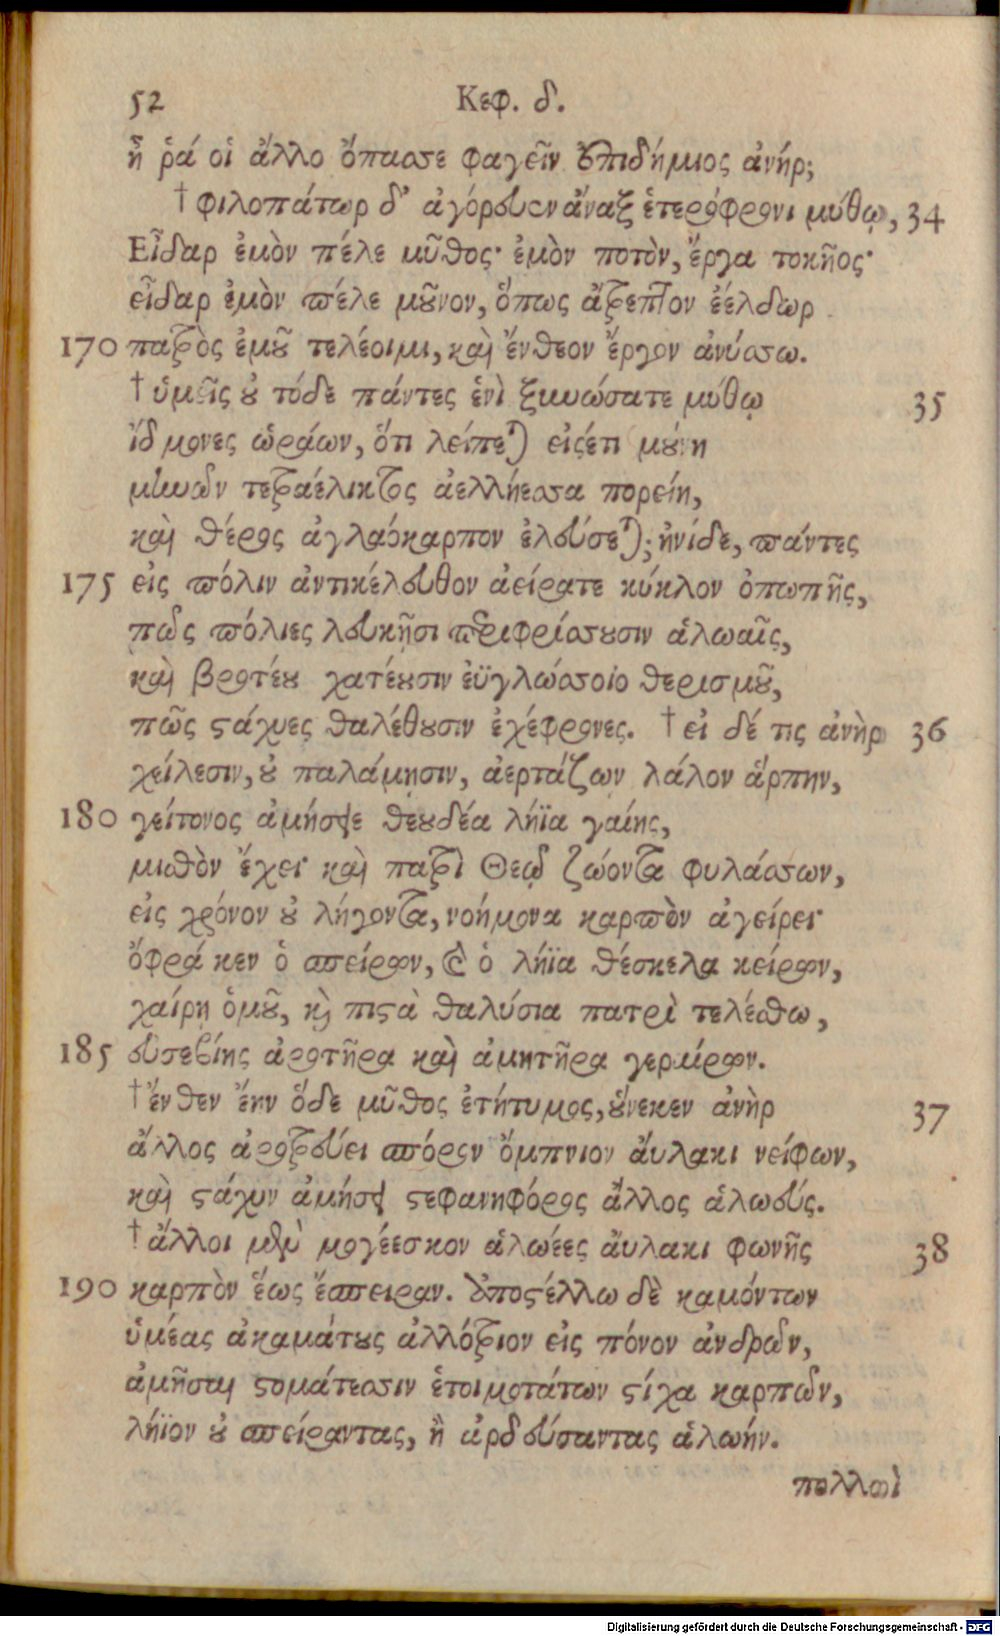 52 Κεφ. δ.
ἦ ῥά οἱ ἄλλο ὄπασσε φαγεῖν ἐπιδήμιος ἀνήρ;
† φιλοπάτωρ δ' ἀγόρευεν ἄναξ ἑτερόφρονι μύθῳ, 34
Εἶδαρ ἐμὸν πέλε μῦθος· ἐμὸν ποτὸν, ἔργα τοκῆος·
εἶδαρ ἐμὸν πέλε μοῦνον, ὅπως ἄτρεπτον ἐέλδωρ
170 πατρὸς ἐμοῦ τελέοιμι, καὶ ἔνθεον ἔργον ἀνύσσω.
† ὑμεῖς οὐ τόδε πάντες ἑνὶ ξυνώσατε μύθῳ 35
ἴδμονες ὡράων, ὅτι λείπεται εἰσέτι μούνη
μηνῶν τετραέλικτος ἀελλήεσσα πορείη,
καὶ θέρος ἀγλαόκαρπον ἐλεύσεται; ἠνίδε, πάντες
175 εἰς πόλιν ἀντικέλευθον ἀείρατε κύκλον ὀπωπῆς,
πῶς πόλιες λευκῇσι περιφρίσσουσιν ἁλωαῖς,
καὶ βροτέου χατέουσιν ἐϋγλώσσοιο θερισμοῦ,
πῶς στάχυες θαλέθουσιν ἐχέφρονες. † εἰ δέ τις ἀνὴρ 36
χείλεσιν, οὐ παλάμῃσιν, ἀερτάζων λάλον ἅρπην,
180 γείτονος ἀμήσειε θεουδέα λήϊα γαίης,
μισθὸν ἔχει· καὶ πατρὶ Θεῷ ζώοντα φυλάσσων,
εἰς χρόνον οὐ λήγοντα, νοήμονα καρπὸν ἀγείρει·
ὄφρά κεν ὁ σπείρων, καὶ ὁ λήϊα θέσκελα κείρων,
χαίρῃ ὁμοῦ, καὶ πιστὰ θαλύσια πατρὶ τελέσθω,
185 εὐσεβίης ἀροτῆρα καὶ ἀμητῆρα γεραίρων.
† ἔνθεν ἔην ὅδε μῦθος ἐτήτυμος, οὕνεκεν ἀνὴρ 37
ἄλλος ἀροτρεύει σπόρον ὄμπνιον αὔλακι νείφων,
καὶ στάχυν ἀμήσει στεφανηφόρος ἄλλος ἁλωεύς.
† ἄλλοι μὲν μογέεσκον ἁλωέες αὔλακι φωνῆς 38
190 καρπὸν ἕως ἔσπειραν. ἀποστέλλω δὲ καμόντων
ὑμέας ἀκαμάτους ἀλλότριον εἰς πόνον ἀνδρῶν,
ἀμῆσαι στομάτεσσιν ἑτοιμοτάτων στίχα καρπῶν,
λήϊον οὐ σπείραντας, ἢ ἀρδεύσαντας ἁλωήν.
πολλοὶ
Digitalisierung gefördert durch die Deutsche Forschungsgemeinschaft - DFG